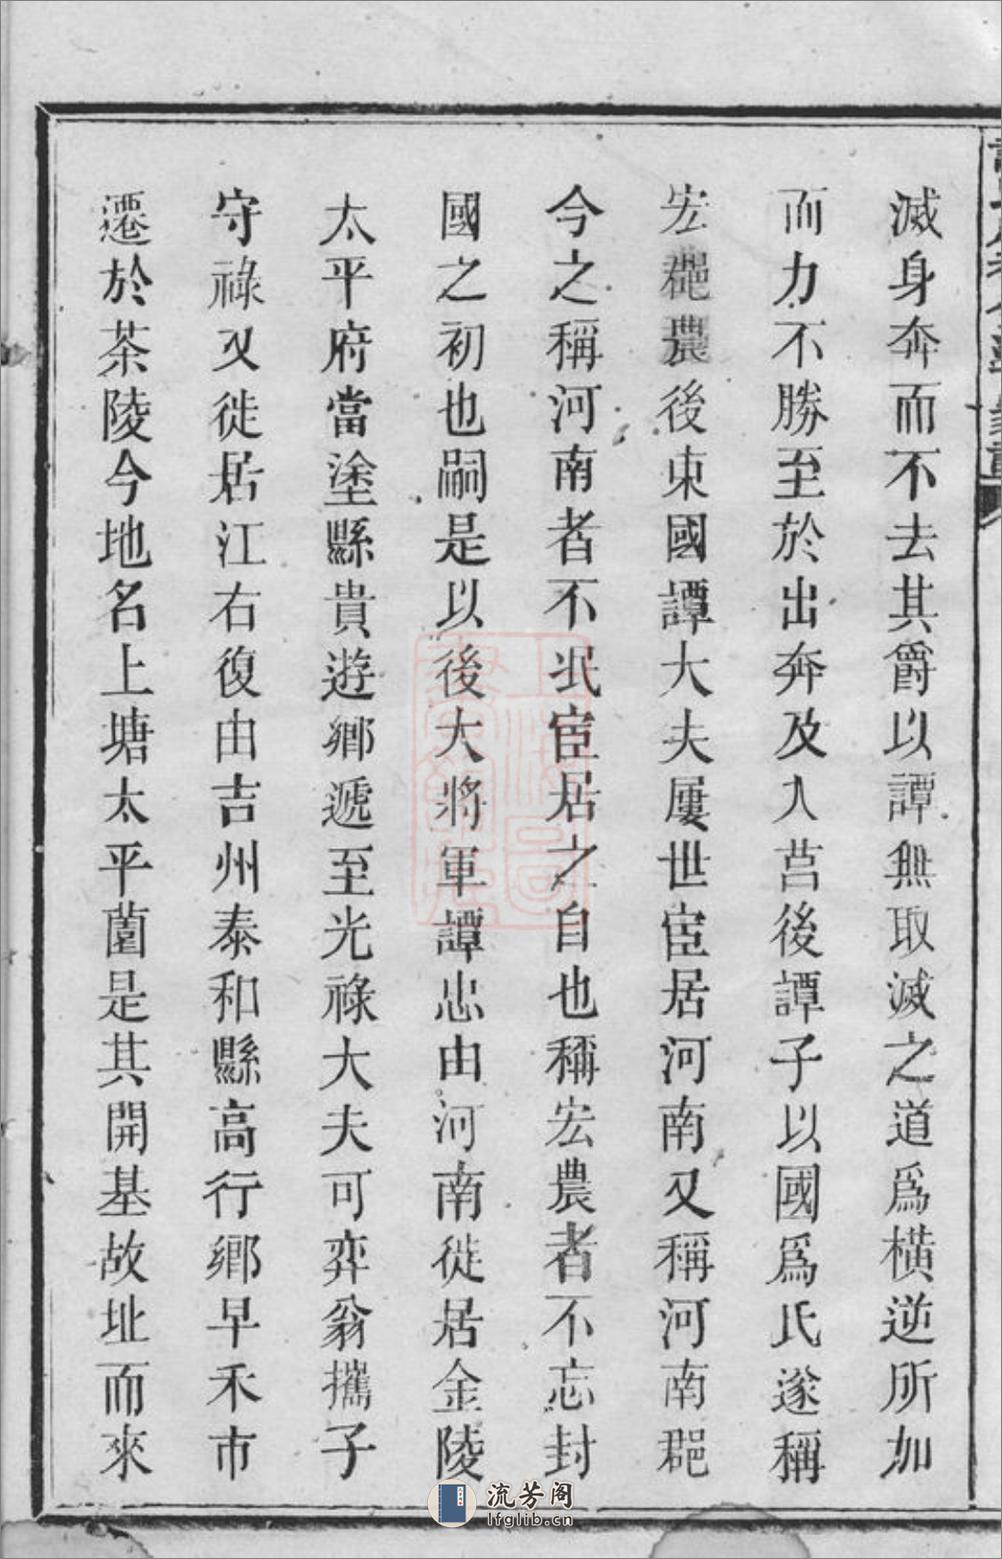 滅身奔而不去其爵以譚無取滅之道爲橫逆所加
而力不勝至於出奔及入莒後譚子以國爲氏遂稱
宏農後東國譚大夫屢世宦居河南又稱河南郡
今之稱河南者不泯宦居之自也稱宏農者不忘封
國之初也嗣是以後大將軍譚忠由河南徙居金陵
太平府當塗縣貴遊鄉遞至光祿大夫可弈翁攜子
守祿又徙居江右復由吉州泰和縣高行鄉早禾市
遷於茶陵今地名上塘太平薗是其開基故址而來
流芳阁
lfglib.cn